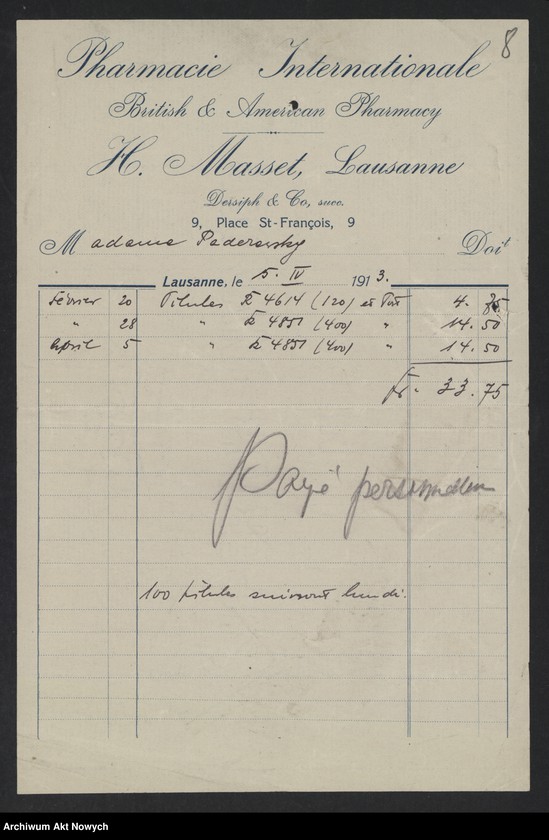 8
Pharmacie Internationale
British & American Pharmacy
H. Masset, Lausanne
Dersiph & Co, succ.
9, Place St-François, 9
Madame Paderewsky Doit
Lausanne, le 5. IV 1913.
Février 20 Pilules № 4614 (120) et Port 4.75
" 28 " № 4851 (400) " 14.50
April 5 " № 4851 (400) " 14.50
Fr. 33.75
Payé personnellem
100 pilules suivront lundi.
Archiwum Akt Nowych